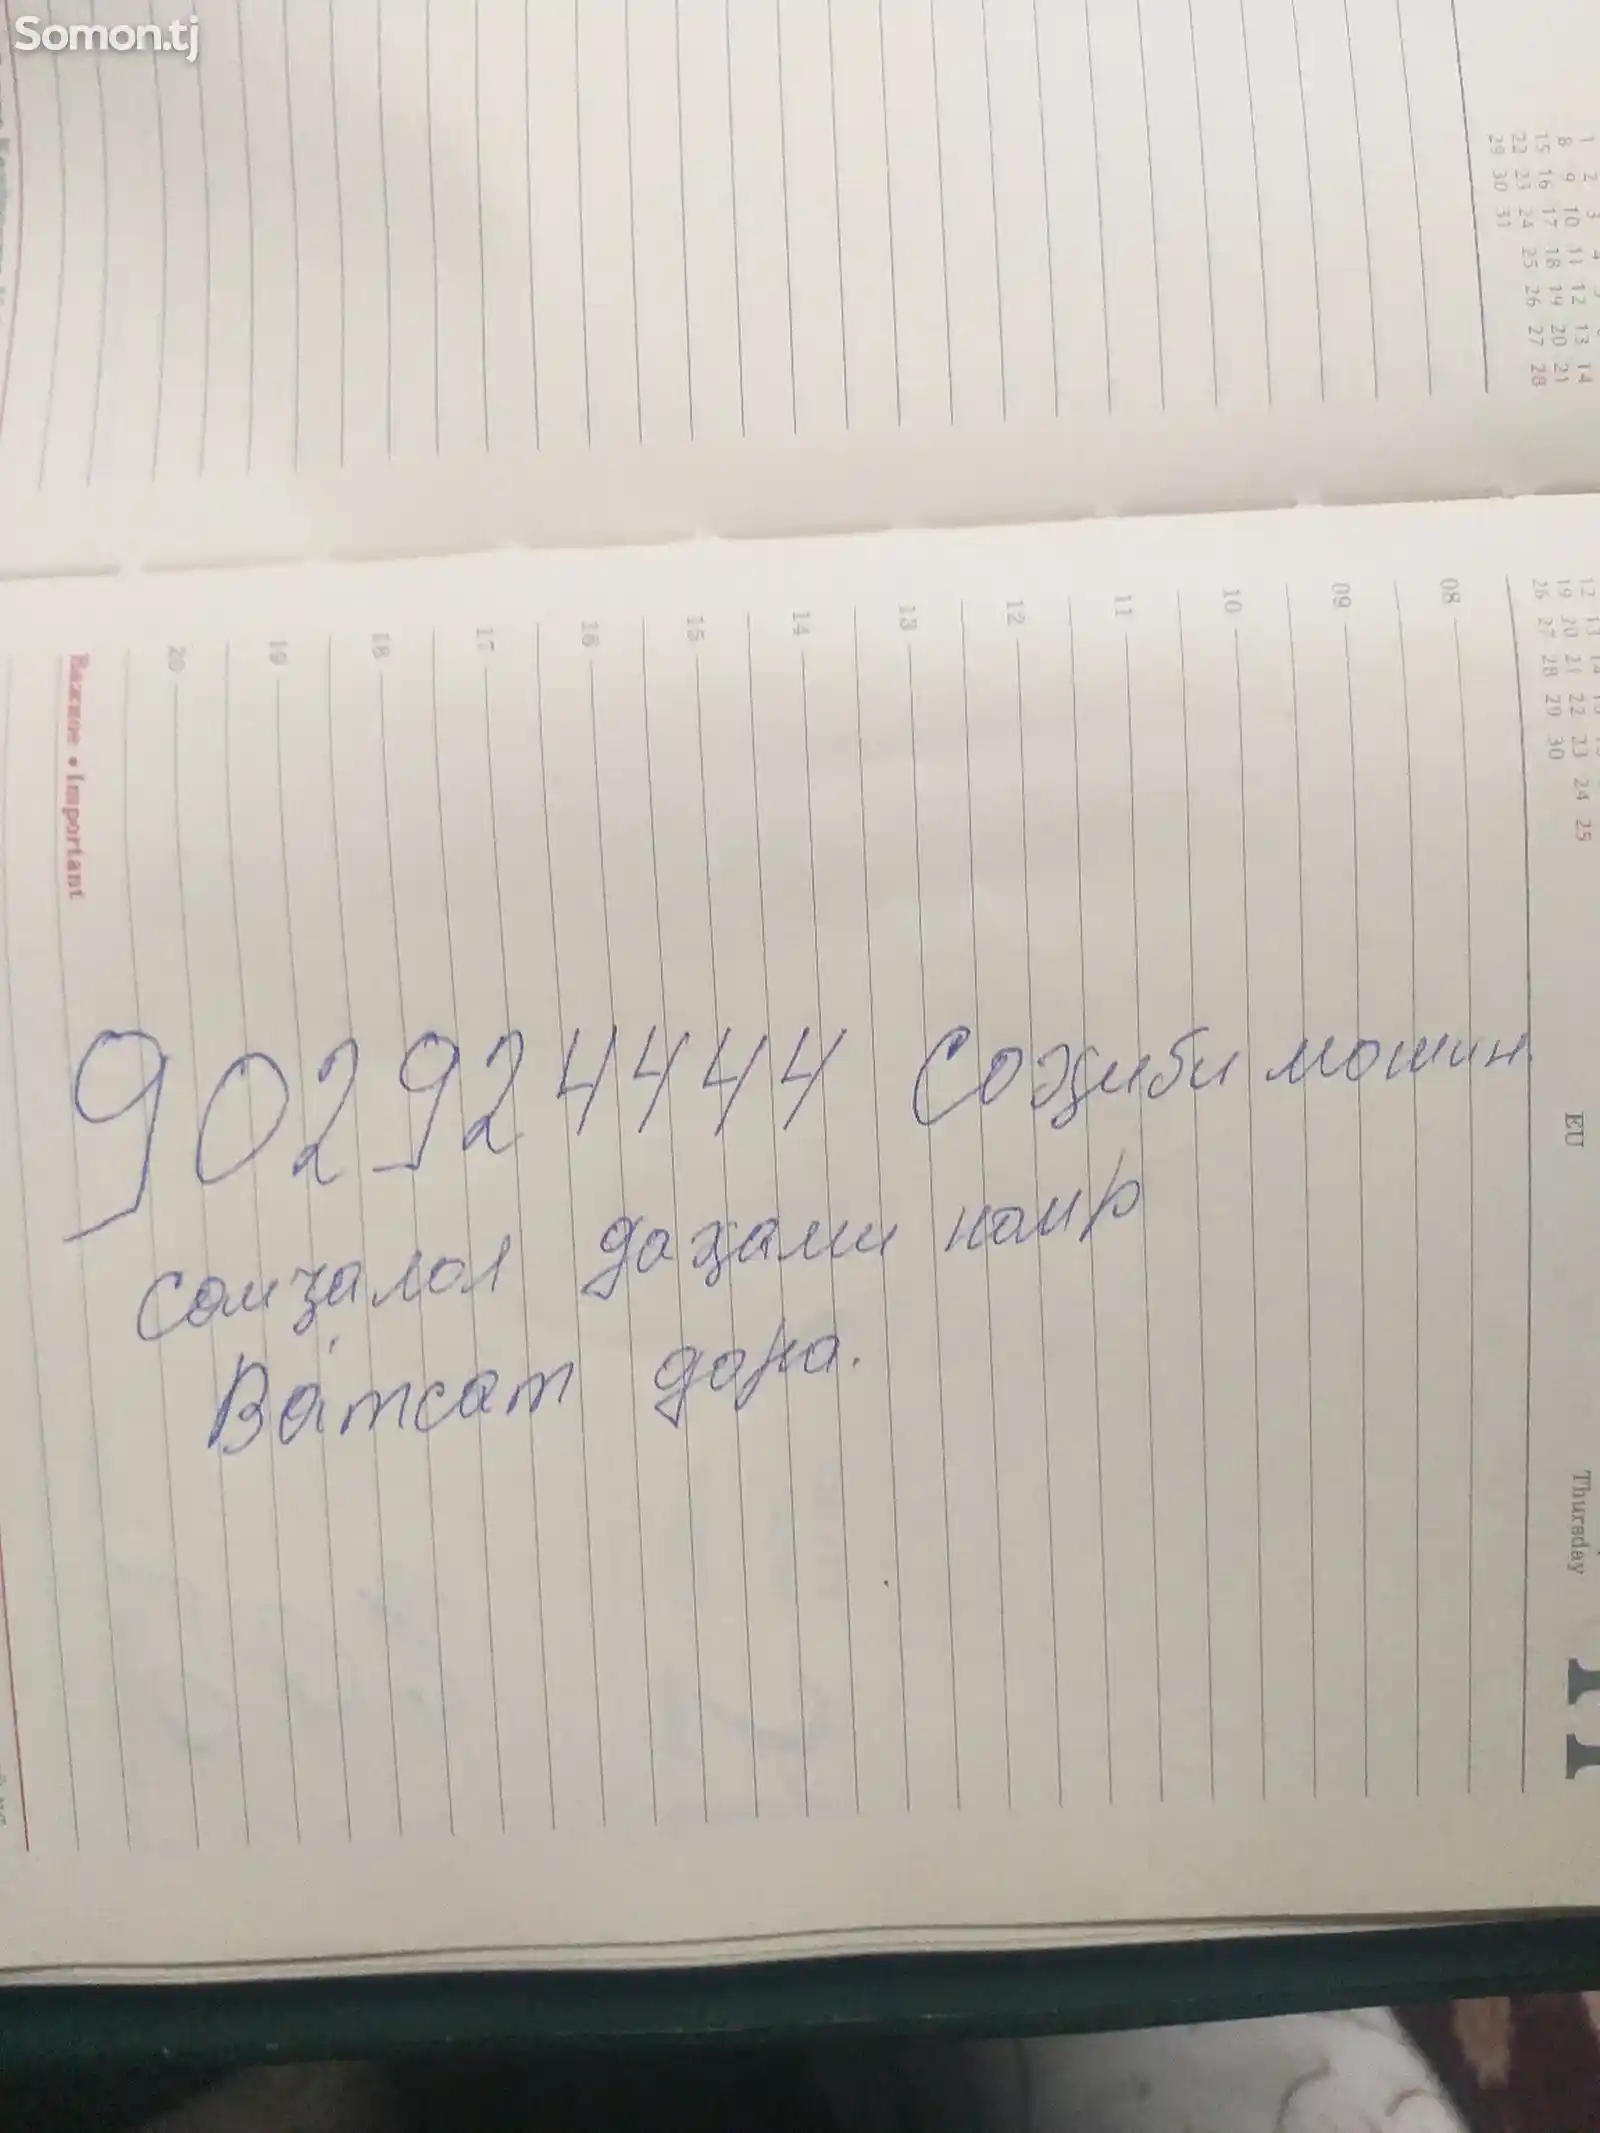 Somon.tj
1 2 3 4 5
8 9 10 11 12 13 14
15 16 17 18 19 20 21
22 23 24 25 26 27 28
29 30 31
12 13 14
19 20 21 22 23 24 25
26 27 28 29 30
EU
Thursday
08
09
10
11
12
13
14
15
16
17
18
19
20
Важное • Important
902924444 Соҳиби мошин
дахами номр
Ватсат дора.